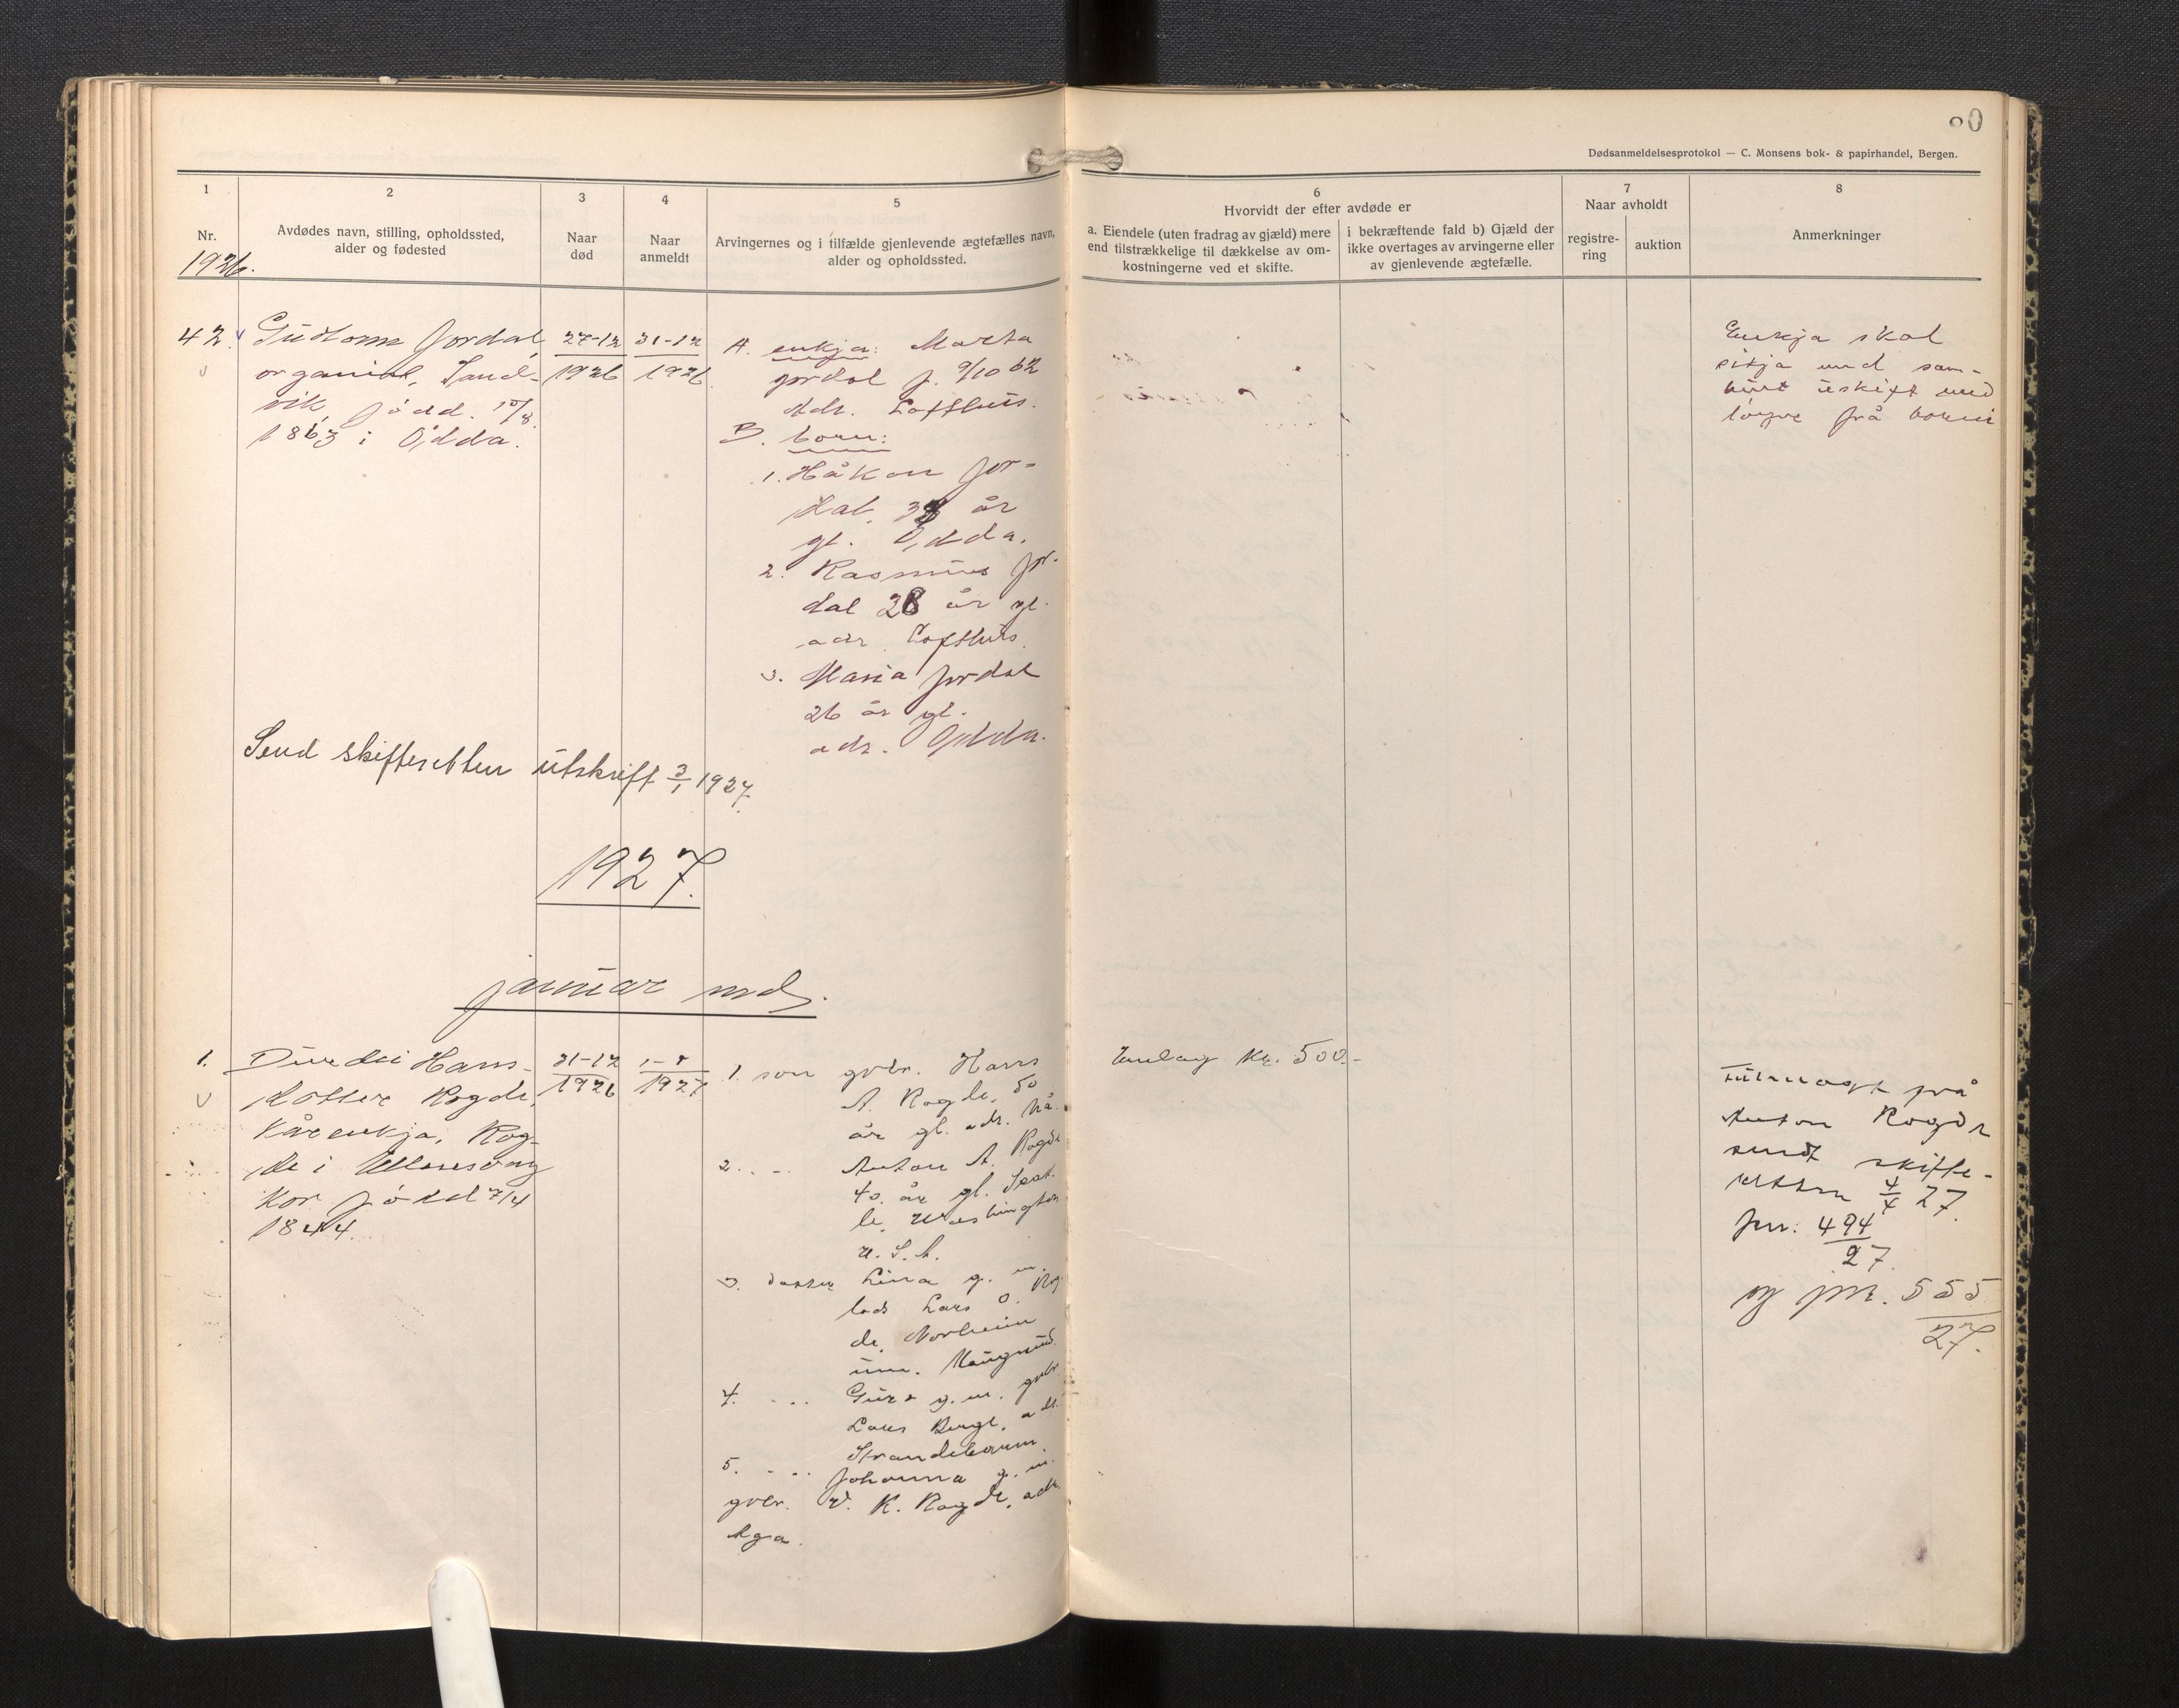 80
Dødsanmeldelsesprotokol — C. Monsens bok- & papirhandel, Bergen.
1
Nr.
1926.
2
Avdødes navn, stilling, opholdssted,
alder og fødested
3
Naar
død
4
Naar
anmeldt
5
Arvingernes og i tilfælde gjenlevende ægtefælles navn,
alder og opholdssted.
6
Hvorvidt der efter avdøde er
a. Eiendele (uten fradrag av gjæld) mere
end tilstrækkelige til dækkelse av om-
kostningerne ved et skifte.
i bekræftende fald b) Gjæld der
ikke overtages av arvingerne eller
av gjenlevende ægtefælle.
7
Naar avholdt
registre-
ring
auktion
8
Anmerkninger
42.
Gudtorm Jordal,
organist, Sand-
vik, født 15/8
1863 i Odda.
27-12
1926
31-12
1926
A. enkja: Marta
Jordal f. 9/10 62
Adr. Lofthus.
B. born:
1. Håkon Jor-
dal, år
gl. Odda.
2. Rasmus Jor-
dal 28 år gl.
adr. Lofthus.
3. Maria Jordal
26 år gl.
adr. Odda.
Enkja skal
sitja med sam-
buet uskift med
løyve frå borni
Send skifteretten utskrift 3/1 1927.
1927.
januar md.
1.
Durdei Hans-
dotter Rogde,
kårenkja, Rog-
de i Ullensvang
Kor født 7/4
1844.
31-12
1926
1-
1927
1. son gbr. Hans
A. Rogde, 50
år gl. adr. Nå.
2. - - Anton A. Rogde
40 år gl. Seat-
le, Washington
U.S.A.
3. dotter Lina g. m.
lods Lars O. Rog-
de, Norheim
4. - - Guro g. m. gbr.
Lars Berge, adr.
Strandebarm.
5. - - Johanna g. m.
gbr. V. K. Rogde, adr.
Aga.
Innlag kr. 500.-
Fullmagt frå
Anton Rogde
sendt skifte-
retten 4/4 27.
Jnr. 494
27.
og jnr. 555
27.